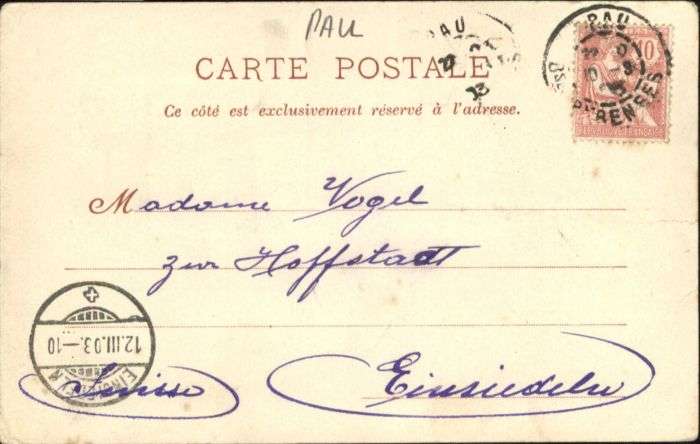 PAU
PAU
CARTE POSTALE
Ce côté est exclusivement réservé à l'adresse.
PAU
10
RÉPUBLIQUE FRANÇAISE
Madame Vogel
zur Hoffstadt
12.III.03.—10
Suisse
Einsiedeln